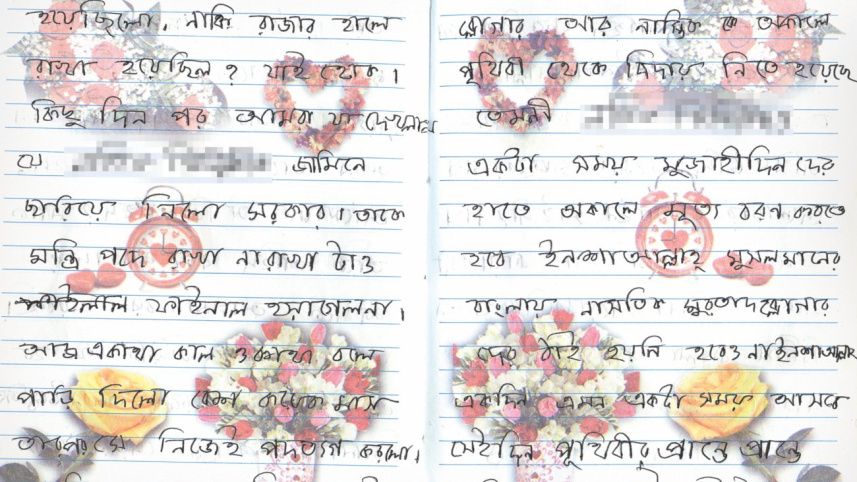 হয়েছিলো, নাকি রাজার হালে
রাখা হয়েছিল? যাই হোক।
কিছু দিন পর আমরা যা দেখলাম
যে জামিনে
ছারিয়ে নিলো সরকার। তাকে
মন্ত্রি পদে রাখা নারাখা টাও
ফাইনাল হলোনা।
আজ একাথা কাল ওকাথা বলে
পারি দিলো বেশ কয়েক মাস
তারপর সে নিজেই পদত্যাগ করলো।
ব্লোগার আর নাস্তিক কে অকালে
পৃথিবী থেকে বিদায় নিতে হয়েছে
তেমনী
একটা সময় মুজাহীদিন দের
হাতে অকালে মৃত্য বরন করতে
হবে ইনশাআল্লাহ্ মুসলমানের
বাংলায় নাসতিক মুরতাদ ব্লোগার
দের ঠাই হয়নি হবেও না ইনশাআল্লাহ
একদিন এমন একটা সময় আসবে
সেই দিন পৃথিবীর প্রান্তে প্রান্তে